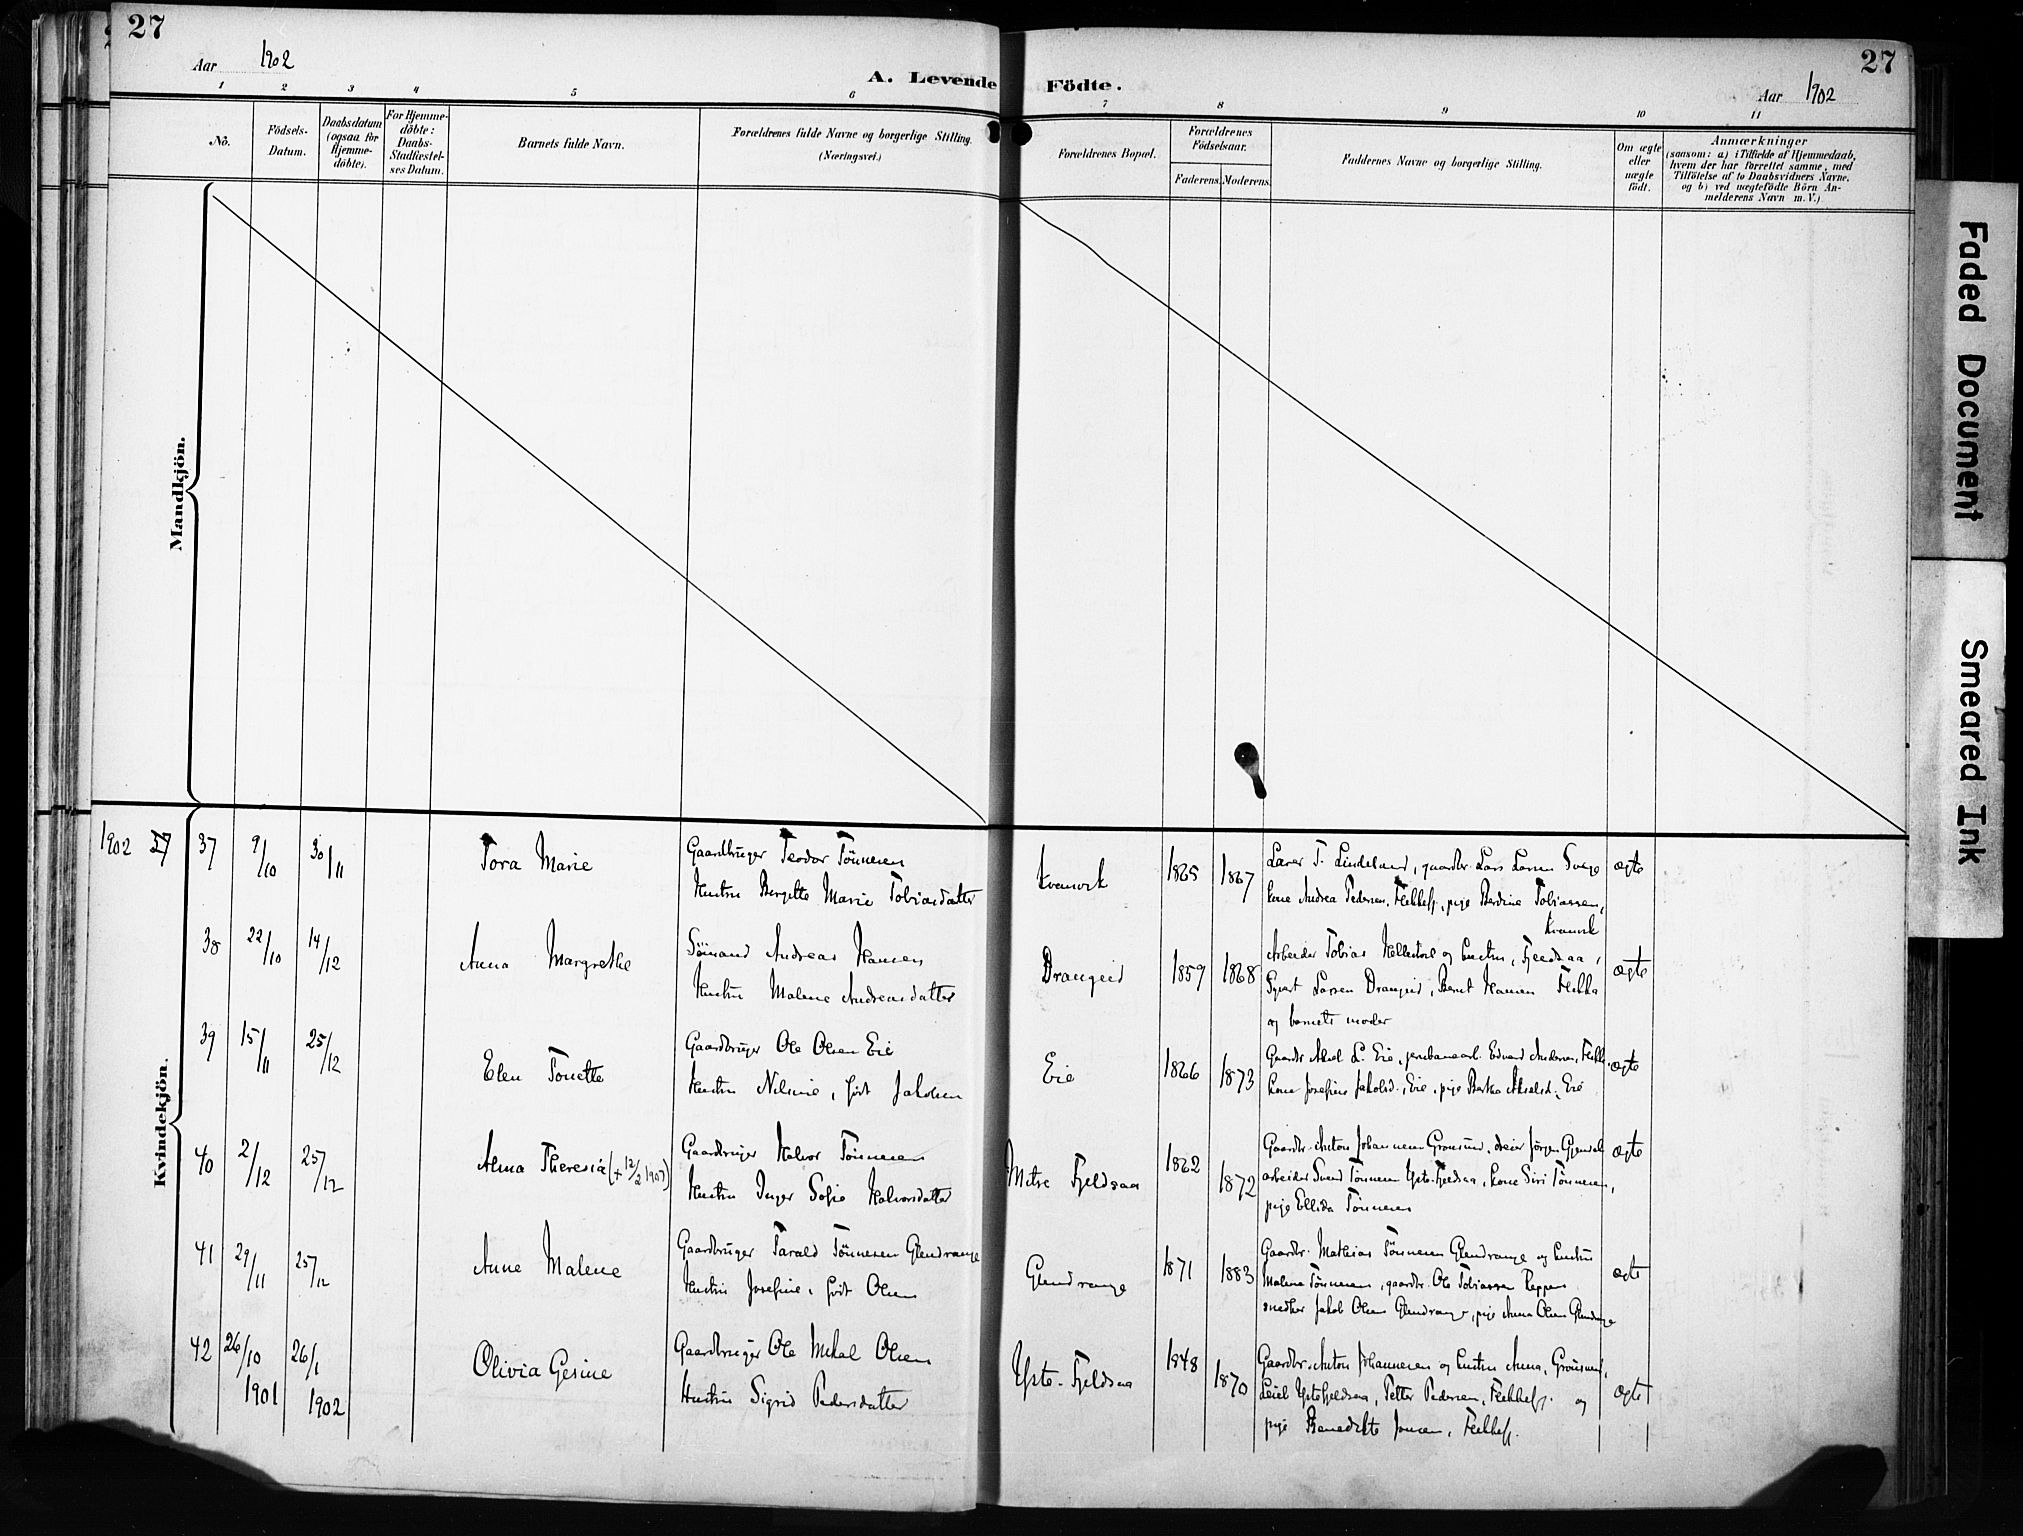 27
Aar 1902
A. Levende Födte.
27
Aar 1902
1 2 3 4 5 6 7 8 9 10 11
No.
Födsels-Datum.
Daabsdatum (ogsaa for Hjemme-döbte).
For Hjemme-döbte: Daabs-Stadfæstel-ses Datum.
Barnets fulde Navn.
Forældrenes fulde Navne og borgerlige Stilling.
(Næringsvei.)
Forældrenes Bopæl.
Forældrenes Födselsaar.
Faderens. Moderens.
Faddernes Navne og borgerlige Stilling.
Om ægte eller uægte födt.
Anmærkninger
(saasom: a) i Tilfælde af Hjemmedaab,
hvem der har forrettet samme, med
Tilföielse af to Daabsvidners Navne,
og b) ved uægtefödte Börn An-
melderens Navn m. V.)
Mandkjön.
Kvindekjön.
1902 37 9/10 30/11 Tora Marie Gaardbruger Teodor Tönnesen
Hustru Bergitte Marie Tobiasdatter
Kvanvik 1865 1867 Lærer T. Lindeland, gaardbr. Lars Larsen
kone Andrea Pedersen, Flekkefj., pige Berdine Tobiassen,
Kvanvik
ægte
38 22/10 14/12 Anna Margrethe Sömand Andreas Hansen
Hustru Malene Andreasdatter
Drangeid 1859 1868 Arbeider Tobias og hustru, Fjeldsaa,
Larsen Drangeid, Bernt Hansen Flekke
og barnets moder
ægte
39 15/11 25/12 Elen Tonette Gaardbruger Ole Olsen Eie
Hustru Nilsine, födt Jakobsen
Eie 1866 1873 Gaardbr. Aksel L. Eie, jernbanearb. Edvard Andersen, Flekk.
kone Josefine Jakobsd., Eie, pige Berta Akselsd., Eie
ægte
40 2/12 25/12 Alma Theresia (+ 12/2 1907) Gaardbruger Halvor Tönnesen
Hustru Inger Sofie Halvorsdatter
Mitre Fjeldsaa 1862 1872 Gaardbr. Anton Johannesen Grönsund, Jörgen
arbeider Svend Tönnesen Yste-Fjeldsaa, kone Siri Tönnesen,
pige Ellida Tönnesen
ægte
41 29/11 25/12 Anne Malene Gaardbruger Tarald Tönnesen Glendrange
Hustru Josefine, födt Olsen
Glendrange 1871 1883 Gaardbr. Mathias Tönnesen Glendrange og hustru
Malene Tönnesen, gaardbr. Ole Tobiassen
snedker Jakob Olsen Glendrange, pige Anna Olsen Glendrange
ægte
42 26/10 1901 26/1 1902 Olivia Gesine Gaardbruger Ole Mikal Olsen
Hustru Sigrid Pedersdatter
Yste-Fjeldsaa 1848 1870 Gaardbr. Anton Johannesen og hustru Anna, Grönsund,
Ystefjeldsaa, Petter Pedersen, Flekkefj. og
pige Benedikte Jonsen, Flekkefj.
ægte
Faded Document
Smeared Ink